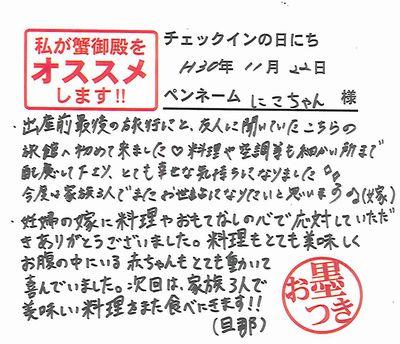 私が蟹御殿を
オススメ
します!!
チェックインの日にち
H30年 11月 22日
ペンネーム にこちゃん 様
・出産前最後の旅行にと、友人に聞いていたこちらの
旅館へ初めて来ました♡料理や空調等も細かい所まで
配慮して下さり、とても幸せな気持ちになりました。
今度は家族3人でまたお世話になりたいと思います(嫁)
・妊婦の嫁に料理やおもてなしの心で応対していただ
きありがとうございました。料理もとても美味しく
お腹の中にいる赤ちゃんもとても動いて
喜んでいました。次回は、家族3人で
美味しい料理をまた食べにきます!!
(旦那)
お墨つき